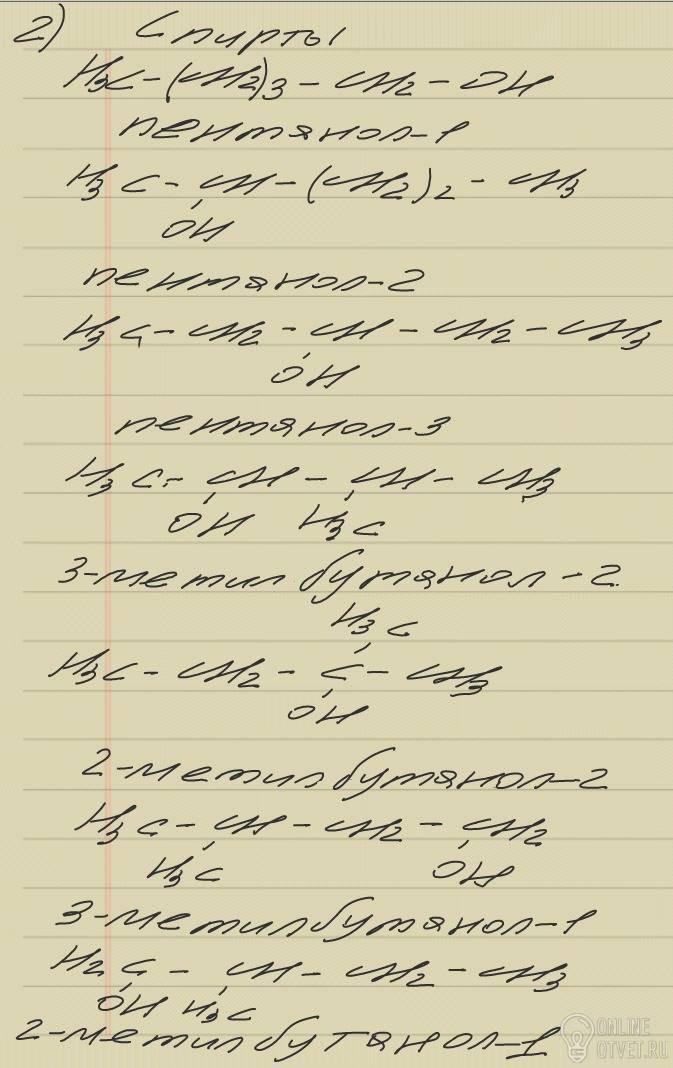 2) Спирты
H3C-(CH2)3-CH2-OH
пентанол-1
H3C-CH-(CH2)2-CH3
OH
пентанол-2
H3C-CH2-CH-CH2-CH3
OH
пентанол-3
H3C-CH-CH-CH3
OH H3C
3-метилбутанол-2
H3C
H3C-CH2-C-CH3
OH
2-метилбутанол-2
H3C-CH-CH2-CH2
H3C OH
3-метилбутанол-1
H2C-CH-CH2-CH3
OH H3C
2-метилбутанол-1
ONLINE
OTVET.RU